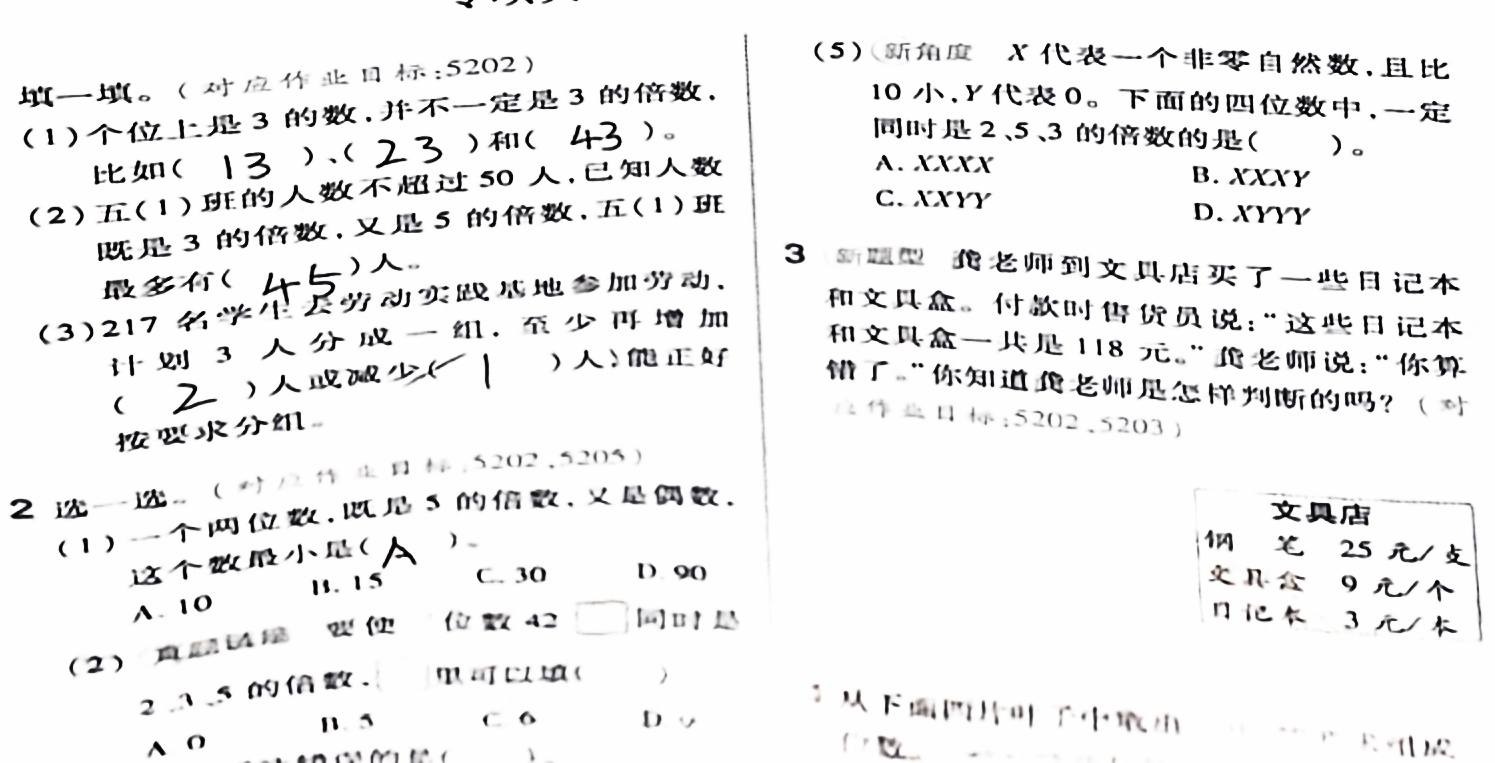 填一填。(对应作业目标:5202)
(1)个位上是3的数,并不一定是3的倍数,
比如( 13 )、( 23 )和( 43 )。
(2)五(1)班的人数不超过50人,已知人数
既是3的倍数,又是5的倍数,五(1)班
最多有( 45 )人。
(3)217名学生去劳动实践基地参加劳动,
计划3人分成一组,至少再增加
( 2 )人或减少( 1 )人,能正好
按要求分组。
2 选一选。(对应作业目标:5202、5205)
(1)一个两位数,既是5的倍数,又是偶数,
这个数最小是( A )。
A. 10 B. 15 C. 30 D. 90
(2) 要使 位数42□同时是
2、3、5的倍数,□里可以填( )
A 0 B. 5 C 6 D
(5) 新角度 X代表一个非零自然数,且比
10小,Y代表0。下面的四位数中,一定
同时是2、5、3的倍数的是( )。
A. XXXX B. XXXY
C. XXYY D. XYYY
3 新题型 龚老师到文具店买了一些日记本
和文具盒。付款时售货员说:“这些日记本
和文具盒一共是118元。”龚老师说:“你算
错了。”你知道龚老师是怎样判断的吗?(对
应作业目标:5202、5203)
文具店
钢 笔 25元/支
文具盒 9元/个
日记本 3元/本
从下面四片叶子中取出 组成
位数。